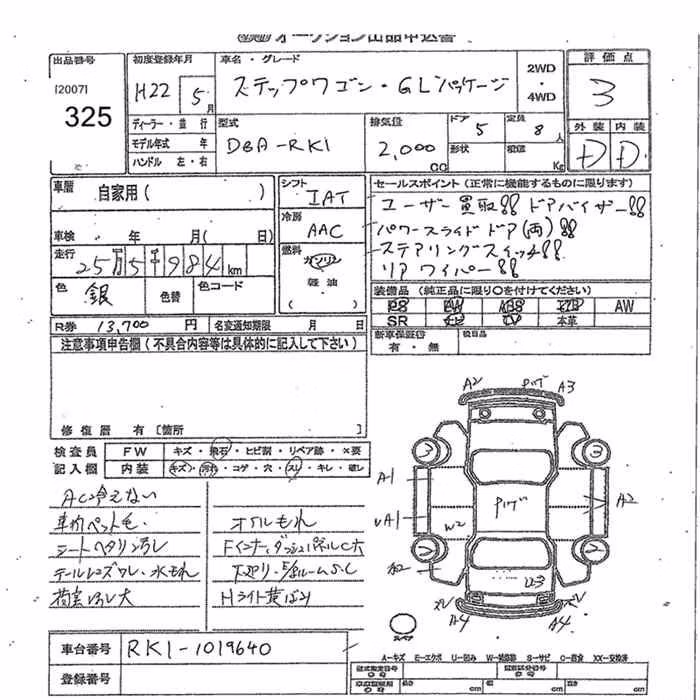 オークション出品申込書
出品番号
[2007]
325
初度登録年月
H22 5月
車名・グレード
ステップワゴン・GLパッケージ
2WD
・
4WD
評価点
3
外装 内装
D D
ディーラー・並行
モデル年式 年
ハンドル 左・右
型式
DBA-RK1
排気量
2,000 cc
ドア 5
定員 8人
形状
積載 Kg
車歴 自家用( )
車検 年 月( 日)
走行 25万5千984km
色 銀
色替
色コード
シフト
IAT
冷房
AAC
燃料
ガソリン
軽油
セールスポイント(正常に機能するものに限ります)
ユーザー買取!! ドアバイザー!!
パワースライドドア(両)!!
ステアリングスイッチ!!
リアワイパー!!
装備品(純正品に限り○を付けてください)
PS PW ABS エアB AW
SR ナビ TV 本革
新車保証書
有・無
R券 13,700円
名変通知期限 月 日
注意事項申告欄(不具合内容等は具体的に記入して下さい)
修復歴 有[箇所
検査員
記入欄
FW キズ・飛石・ヒビ割・リペア跡・×要
内装 キズ・汚れ・コゲ・穴・スレ・キレ・破レ
AC冷えない
車内ペット毛
オイルもれ
シートヘタリ
テールレンズワレ・水もれ
荷室 大
Hライト黄ばみ
A2
A3
3
3
A-1
A1
W2
A2
A2
2
2
U3
A4
A4
スペア
A-キズ E-エクボ U-凹み W-補修跡 S-サビ C-腐食 XX-交換済
車台番号 RK1-1019640
登録番号
cm cm cm cm